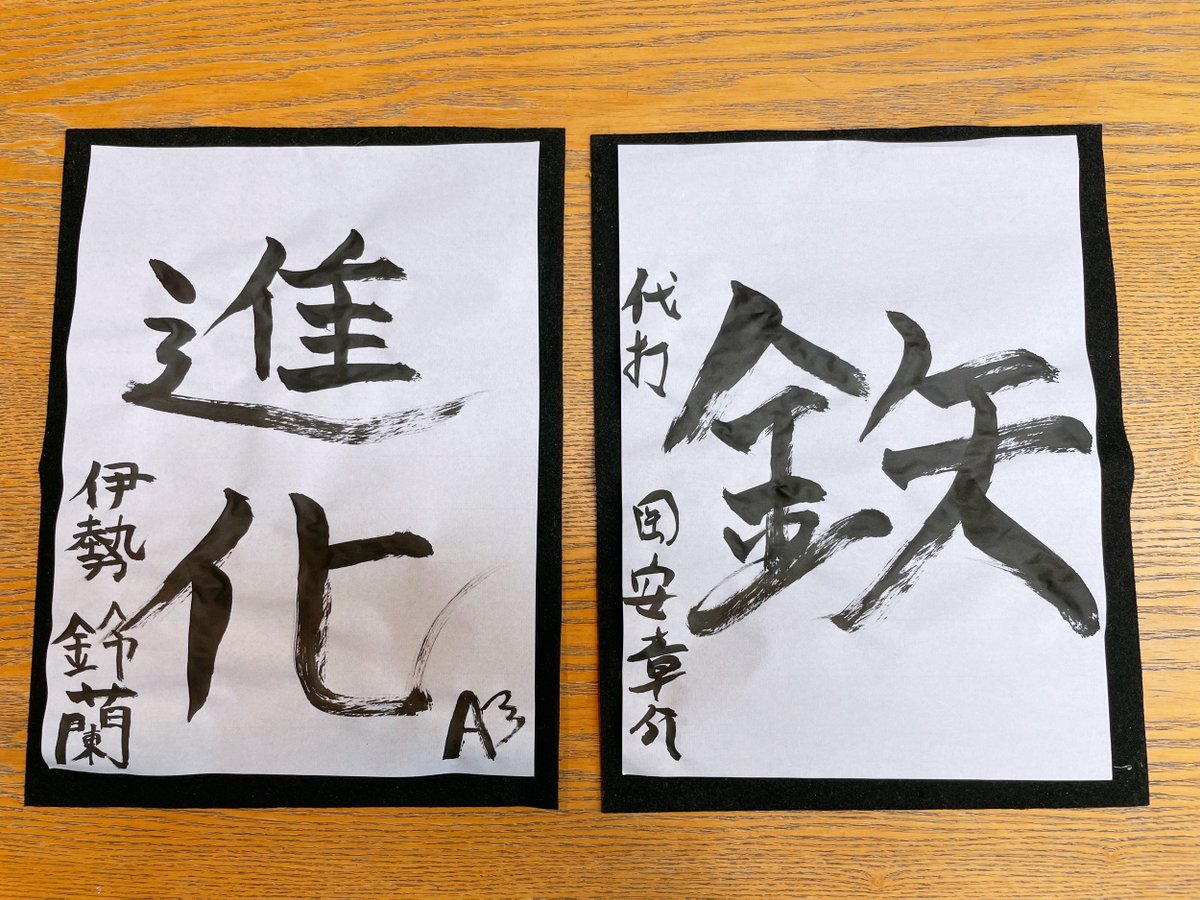 進化
伊勢 鈴蘭
A3
鉃
代打 岡安章介